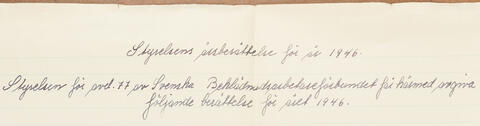 Styrelsens årsberättelse för år 1946.
Styrelsen för avd. 77 av Svenska Beklädnadsarbetareförbundet får härmed avgiva
följande berättelse för året 1946.